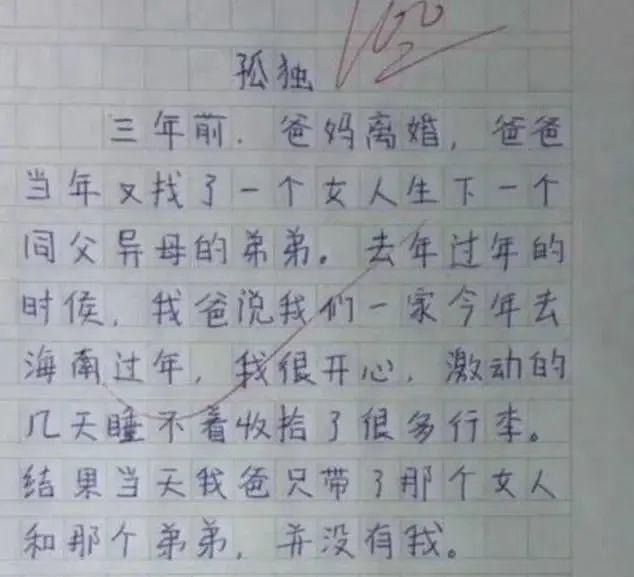 100
孤独
三年前.爸妈离婚,爸爸
当年又找了一个女人生下一个
同父异母的弟弟。去年过年的
时侯,我爸说我们一家今年去
海南过年,我很开心,激动的
几天睡不着收拾了很多行李。
结果当天我爸只带了那个女人
和那个弟弟,并没有我。